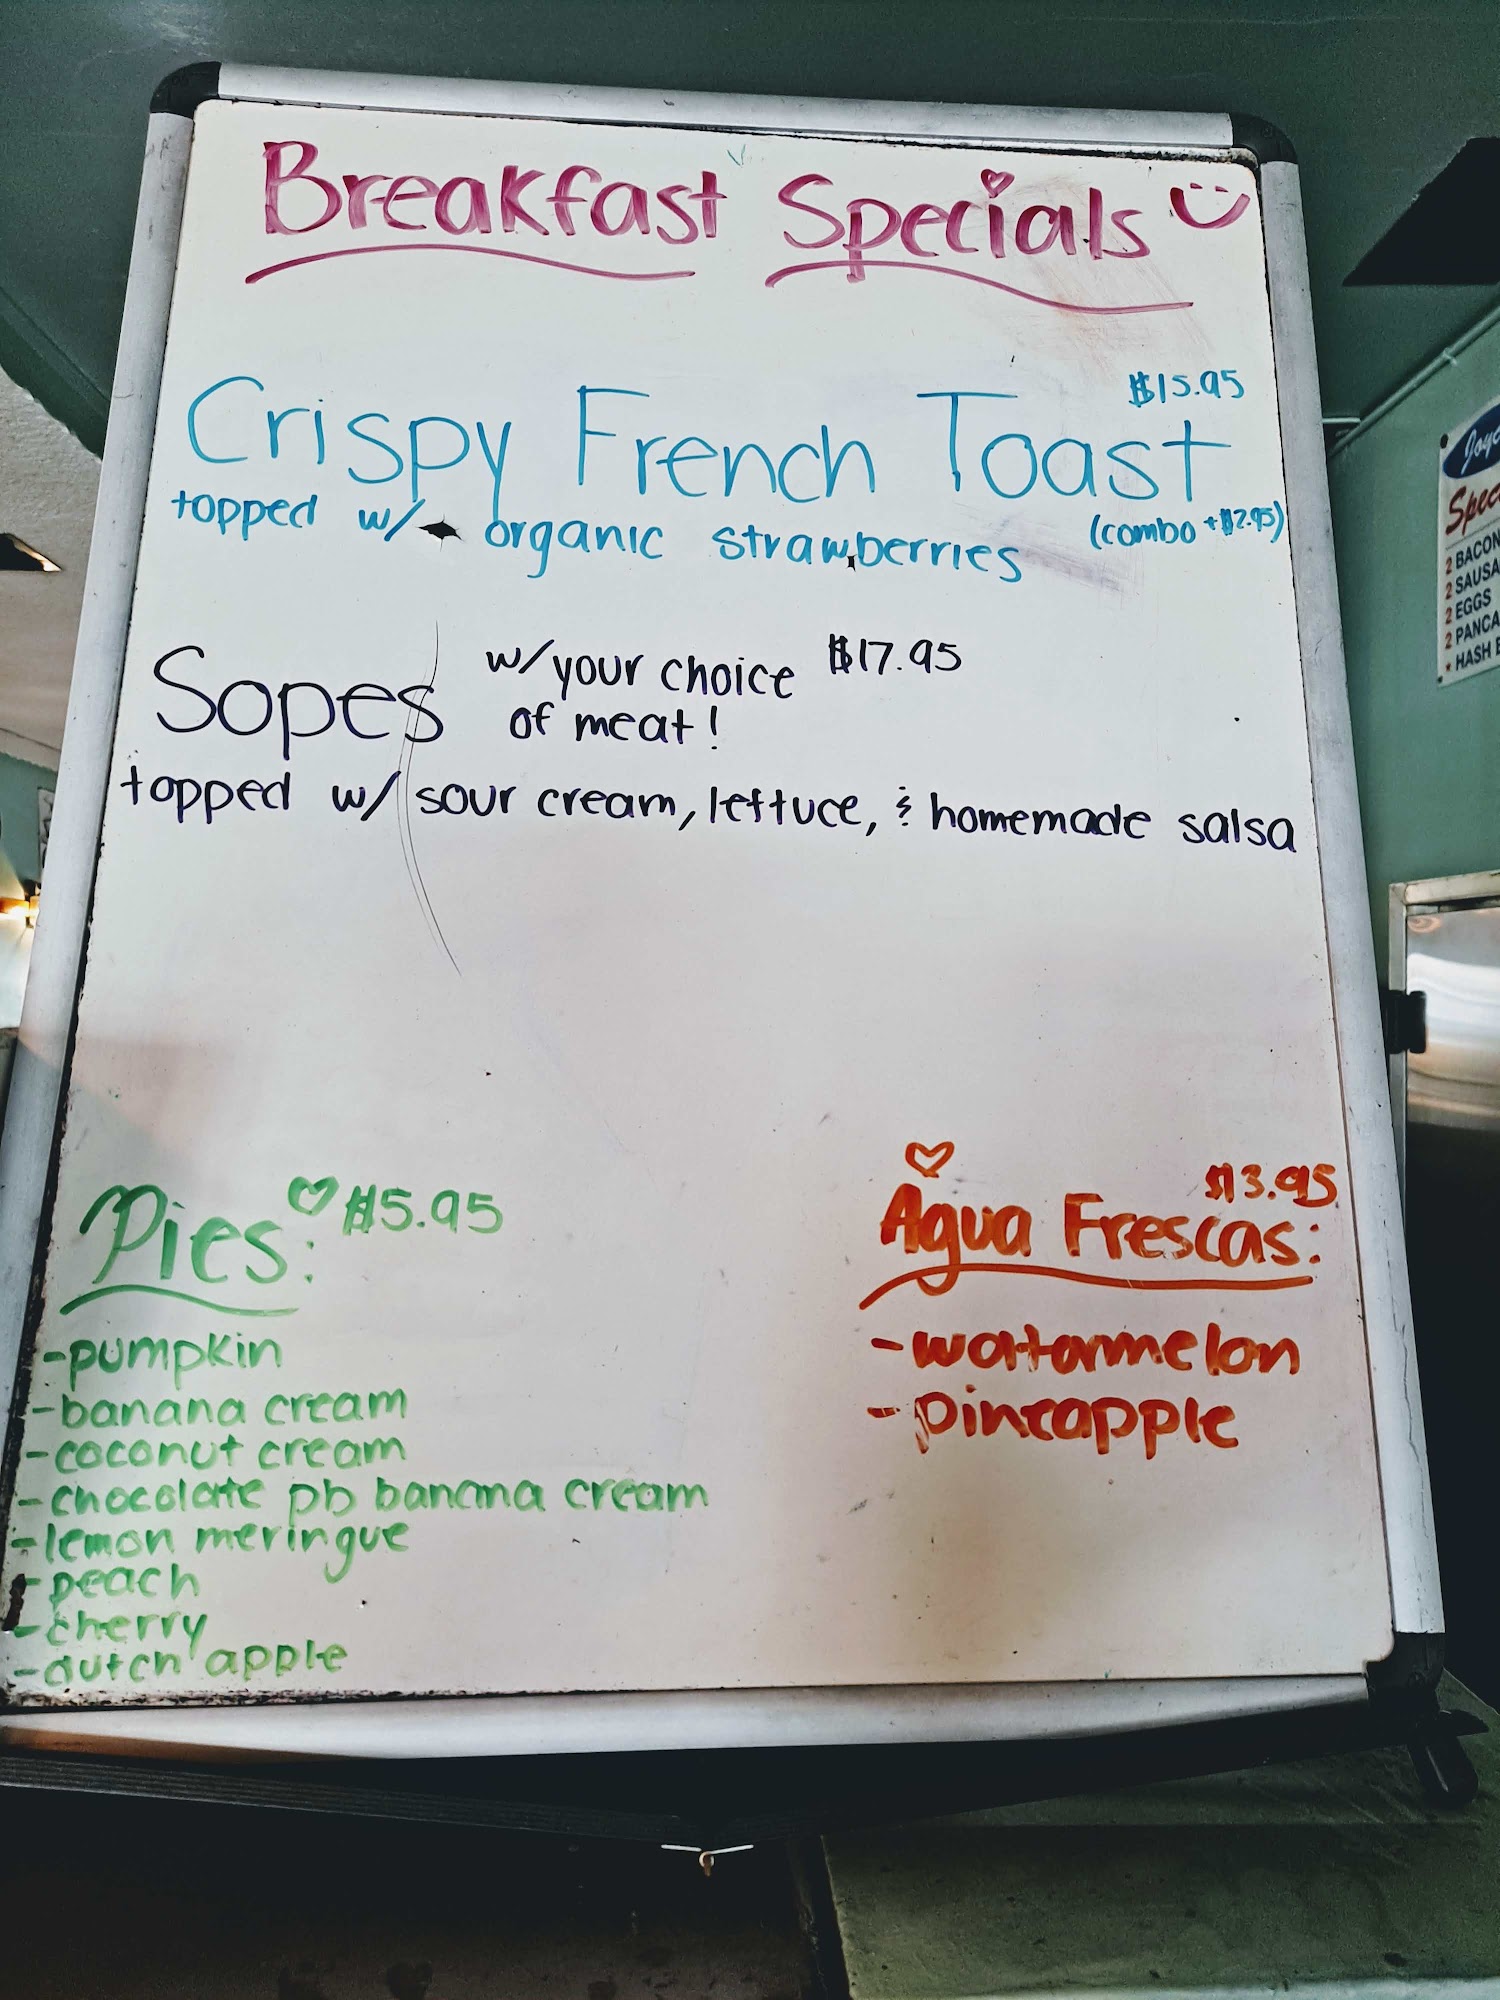 Breakfast Specials
$15.95
Crispy French Toast
topped w/ organic strawberries (combo +$2.95)
Sopes w/your choice $17.95
of meat!
topped w/ sour cream, lettuce, & homemade salsa
Pies: $5.95
-pumpkin
-banana cream
-coconut cream
-chocolate pb banana cream
-lemon meringue
-peach
-cherry
-dutch apple
$3.95
Agua Frescas:
-watermelon
-pineapple
2 BACON
2 EGGS